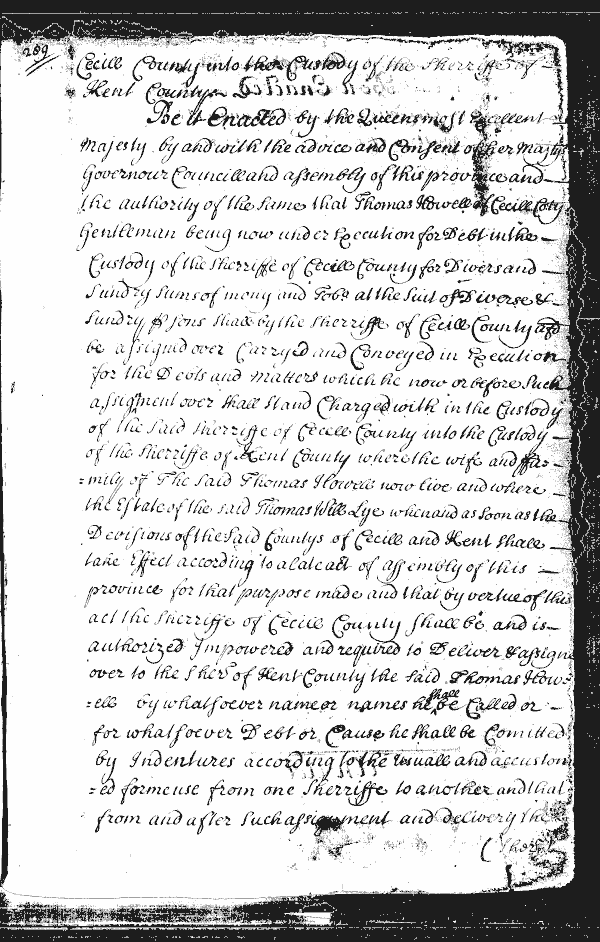 289
Cecill County into the Custody of the Sherriffe of
Kent County
Be it Enacted by the Queens most Excellent
Majesty by and with the advice and Consent of her Majtys
Governour Councill and assembly of this province and
the authority of the same that Thomas Howell of Cecill Coty
Gentleman being now under Execution for Debt in the
Custody of the Sherriffe of Cecill County for Divers and
Sundry Sums of mony and Tobo at the Suit of Diverse &
Sundry psons Shall by the Sherriffe of Cecill County afd
be assigned over Carryed and Conveyed in Execution
for the Debts and Matters which he now or before Such
assignment over shall Stand Charged with in the Custody
of the Said Sherriffe of Cecill County into the Custody
of the Sherriffe of Kent County where the wife and ffa=
=mily of The Said Thomas Howell now live and where
the Estate of the said Thomas Will Lye when and as soon as the
Devisions of the Said Countys of Cecill and Kent Shall
take Effect according to a late act of assembly of this
province for that purpose made and that by vertue of this
act the Sherriffe of Cecill County Shall be and is
authorized Impowered and required to Deliver & assigne
over to the Sherr of Kent County the said Thomas How=
=ell by whatsoever name or names he shall be Called or
for whatsoever Debt or Cause he shall be Comitted
by Indentures according to the usuall and accustom
=ed forme use from one Sherriffe to another and that
from and after Such assignment and delivery the